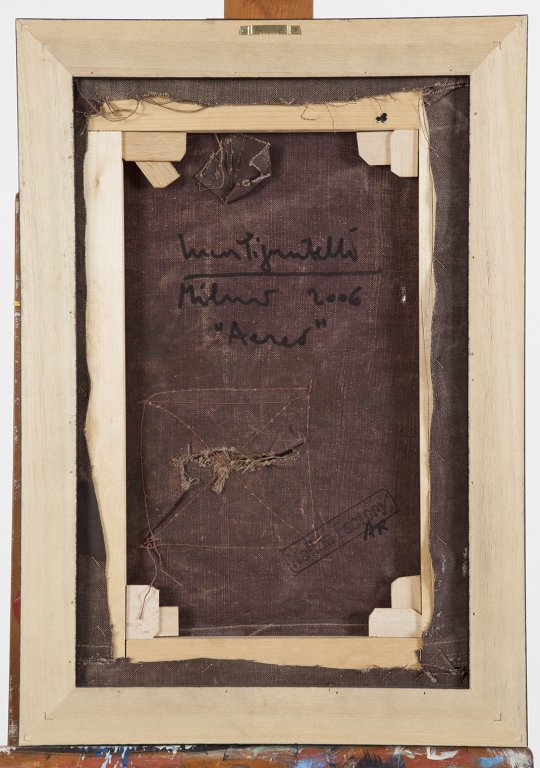 Luca Pignatelli
Milano 2006
"Aereo"
Italian Factory
AR